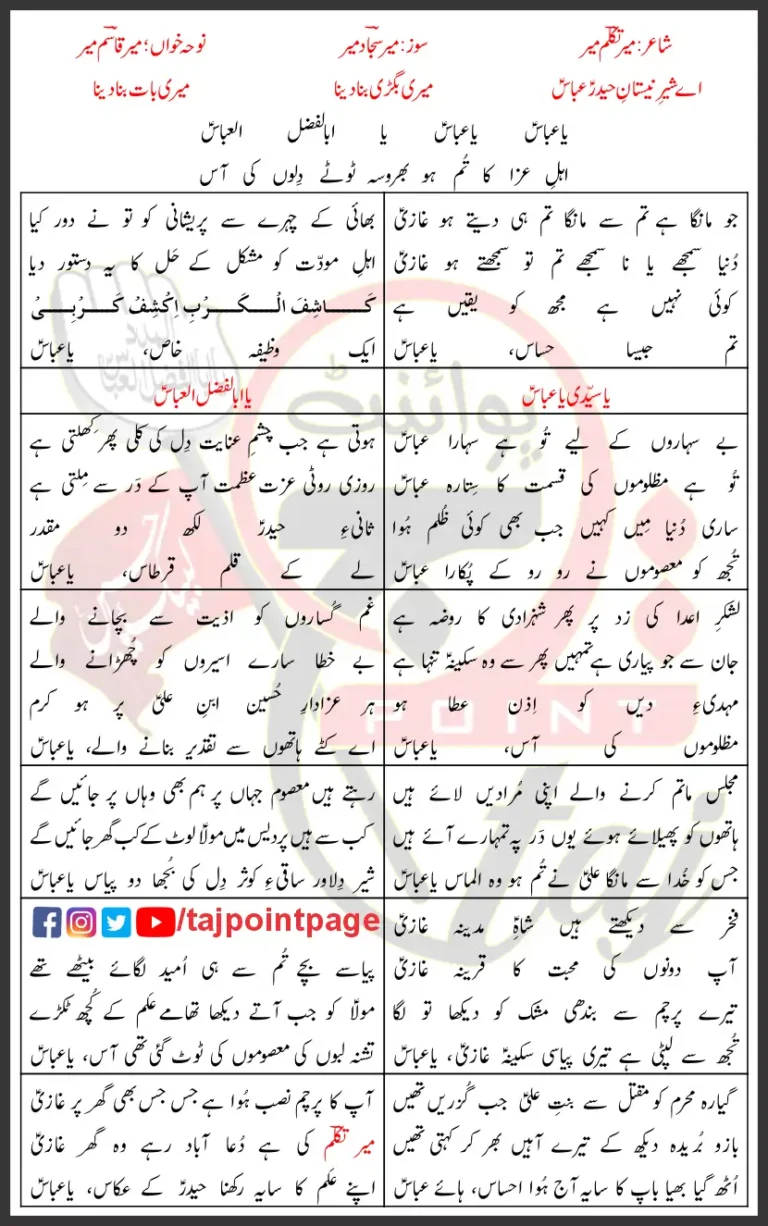 شاعر: میر تکلّم میر
سوز: میر سجاد میر
نوحہ خواں؛ میر قاسم میر
اے شیرِ نیستانِ حیدرؑ عباسؑ
میری بگڑی بنا دینا
میری بات بنا دینا
یا عباسؑ یا عباسؑ یا ابالفضل العباسؑ
اہلِ عزا کا تُم ہو بھروسہ ٹوٹے دِلوں کی آس
جو مانگا ہے تم سے مانگا تم ہی دیتے ہو غازیؑ
دُنیا سمجھے یا نا سمجھے تم تو سمجھتے ہو غازیؑ
کوئی نہیں ہے مجھ کو یقیں ہے
تم جیسا حساس، یا عباسؑ
بھائی کے چہرے سے پریشانی کو تو نے دور کیا
اہلِ مودّت کو مشکل کے حَل کا یہ دستور دیا
کَاشِفَ الْکَرْبِ اِکْشِفْ کَرْبِیْ
ایک وظیفہ خاص، یا عباسؑ
یا سیّدی یا عباسؑ
یا ابالفضل العباسؑ
بے سہاروں کے لیے تُو ہے سہارا عباسؑ
تُو ہے مظلوموں کی قسمت کا سِتارہ عباسؑ
ساری دُنیا مِیں کہیں جب بھی کوئی ظُلم ہُوا
تُجھ کو معصوموں نے رو رو کے پُکارا عباسؑ
ہوتی ہے جب چشمِ عنایت دِل کی کلی پھر کَھلتی ہے
روزی روٹی عزت عظمت آپ کے دَر سے مِلتی ہے
ثانیءِ حیدرؑ لکھ دو مقدر
لے کے قلم قرطاس، یا عباسؑ
لشکرِ اعدا کی زد پر پھر شہزادی کا روضہ ہے
جان سے جو پیاری ہے تمہیں پھر سے وہ سکینہؑ تنہا ہے
مہدیءِ دیں کو اِذن عطا ہو
مظلوموں کی آس، یا عباسؑ
غم گُساروں کو اذیت سے بچانے والے
بے خطا سارے اسیروں کو چُھڑانے والے
ہر عزادارِ حُسین ابنِ علیؑ پر ہو کرم
اے کٹے ہاتھوں سے تقدیر بنانے والے، یا عباسؑ
مجلس ماتم کرنے والے اپنی مُرادیں لائے ہیں
ہاتھوں کو پھیلائے ہوئے یوں دَر پہ تمہارے آئے ہیں
جس کو خُدا سے مانگا علیؑ نے تُم ہو وہ الماس یا عباسؑ
رہتے ہیں معصوم جہاں پر ہم بھی وہاں پر جائیں گے
کب سے ہیں پردیس میں مولاؑ لوٹ کے کب گھر جائیں گے
شیرِ دِلاور ساقیءِ کوثر دِل کی بُجھا دو پیاس یا عباسؑ
فخر سے دیکھتے ہیں شاہِؑ مدینہ غازیؑ
آپ دونوں کی محبت کا قرینہ غازیؑ
تیرے پرچم سے بندھی مشک کو دیکھا تو لگا
تُجھ سے لپٹی ہے تیری پیاسی سکینہؑ غازیؑ، یا عباسؑ
/tajpointpage
پیاسے بچے تُم سے ہی اُمید لگائے بیٹھے تھے
مولاؑ کو جب آتے دیکھا تھامے عَلم کے کُچھ ٹکڑے
تشنہ لبوں کی معصوموں کی ٹوٹ گئی تھی آس، یا عباسؑ
گیارہ محرم کو مقتل سے بنتِ علیؑ جب گُزریں تھیں
بازو بُریدہ دیکھ کے تیرے آہیں بھر کر کہتی تھیں
اُٹھ گیا بھیا باپ کا سایہ آج ہُوا احساس، ہائے عباسؑ
آپ کا پرچم نصب ہُوا ہے جس جس بھی گھر پر غازیؑ
میر تکلّم کی ہے دُعا آباد رہے وہ گھر غازیؑ
اپنے عَلم کا سایہ رکھنا حیدرؑ کے عکاس، یا عباسؑ
پوائنٹ
POINT
taj